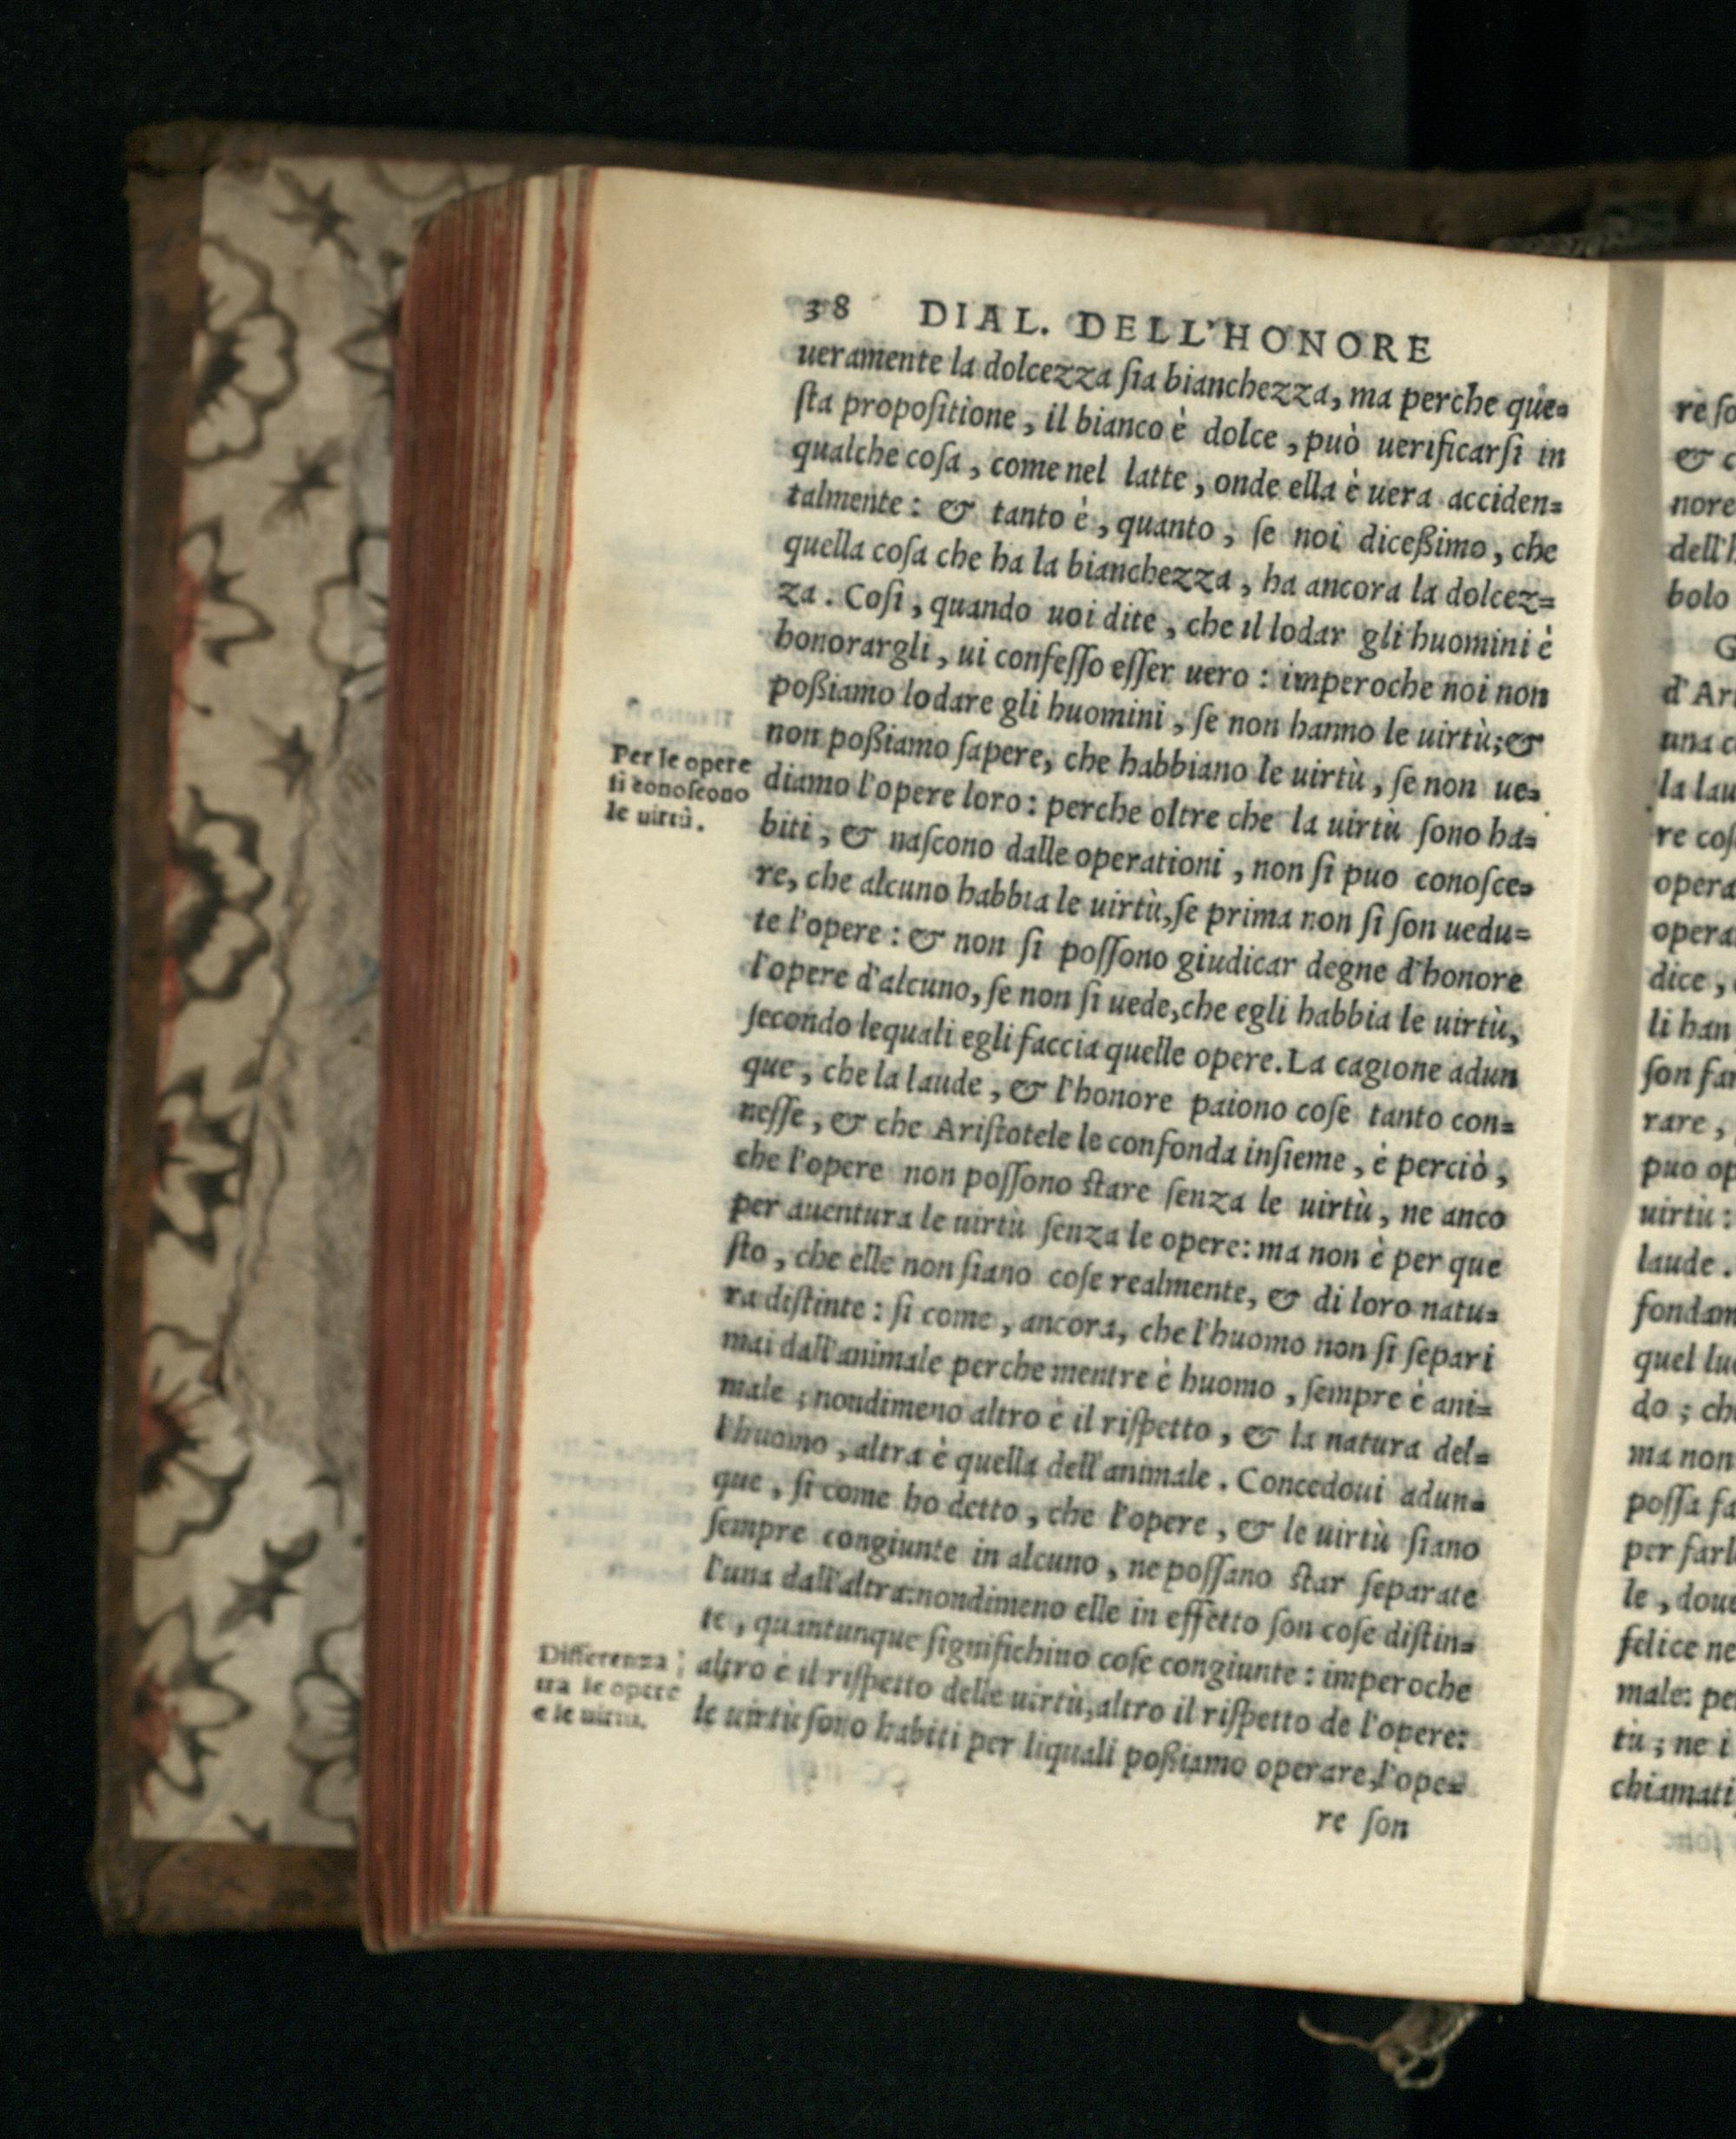 38 DIAL. DELL'HONORE
ueramente la dolcezza ſia bianchezza, ma perche que=
ſta propoſitione, il bianco è dolce, può uerificarſi in
qualche coſa, come nel latte, onde ella è uera acciden=
talmente: & tanto è, quanto, ſe noi diceßimo, che
quella coſa che ha la bianchezza, ha ancora la dolcez=
za. Coſi, quando uoi dite, che il lodar gli huomini è
honorargli, ui confeſſo eſſer uero: imperoche noi non
poßiamo lodare gli huomini, ſe non hanno le uirtù; &
non poßiamo ſapere, che habbiano le uirtù, ſe non ue=
diamo l'opere loro: perche oltre che la uirtù ſono ha=
biti, & naſcono dalle operationi, non ſi puo conoſce=
re, che alcuno habbia le uirtù, ſe prima non ſi ſon uedu=
te l'opere: & non ſi poſſono giudicar degne d'honore
l'opere d'alcuno, ſe non ſi uede, che egli habbia le uirtù,
ſecondo lequali egli faccia quelle opere. La cagione adun
que, che la laude, & l'honore paiono coſe tanto con=
neſſe, & che Ariſtotele le confonda inſieme, è perciò,
che l'opere non poſſono ſtare ſenza le uirtù, ne anco
per auentura le uirtù ſenza le opere: ma non è per que
ſto, che elle non ſiano coſe realmente, & di loro natu=
ra diſtinte: ſi come, ancora, che l'huomo non ſi ſepari
mai dall'animale perche mentre è huomo, ſempre è ani=
male; nondimeno altro è il riſpetto, & la natura del=
l'huomo, altra è quella dell'animale. Concedoui adun=
que, ſi come ho detto, che l'opere, & le uirtù ſiano
ſempre congiunte in alcuno, ne poſſano ſtar ſeparate
l'una dall'altra: nondimeno elle in effetto ſon coſe diſtin=
te, quantunque ſignifichino coſe congiunte: imperoche
altro è il riſpetto delle uirtù, altro il riſpetto de l'opere:
le uirtù ſono habiti per liquali poßiamo operare, l'ope=
re ſon
Per le opere
ſi conoſcono
le uirtù.
Differenza
tra le opere
e le uirtù.
re ſo
& c
nore
dell'h
bolo
G
d'Ar
una c
la lau
re coſ
opera
opera
dice,
li han
ſon fa
rare,
puo op
uirtù:
laude.
fondam
quel lu
do; ch
ma non
poſſa fa
per farl
le, doue
felice ne
male: pe
tù; ne i
chiamati